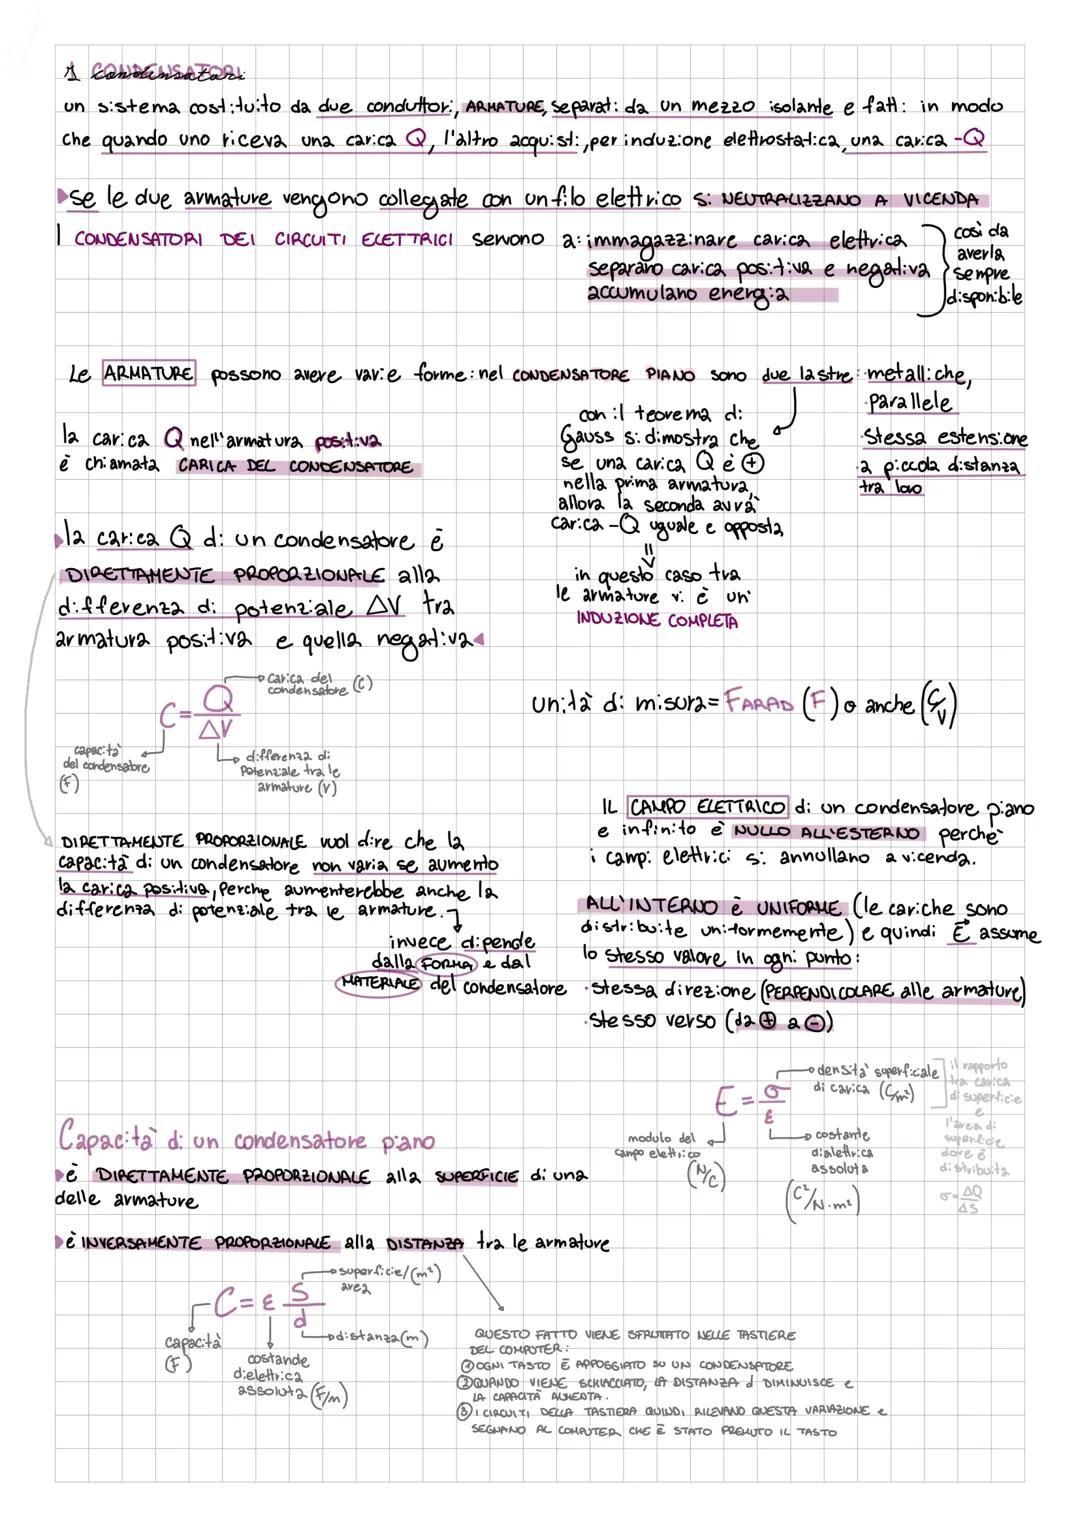 I CONDENSATORI
un sistema costituito da due conduttori, ARMATURE, separati da un mezzo isolante e fatti in modo
che quando uno riceva una carica Q, l'altro acquisti, per induzione elettrostatica, una carica -Q
se le due armature vengono collegate con un filo elettrico si NEUTRALIZZANO A VICENDA
I CONDENSATORI DEI CIRCUITI ELETTRICI servono a: immagazzinare carica elettrica
separano carica positiva e negativa
accumulano energia
così da
averla
sempre
disponibile
Le ARMATURE possono avere varie forme: nel CONDENSATORE PIANO sono due lastre: metalliche,
·parallele
·stessa estensione
·a piccola distanza
tra loro
con il teorema di
Gauss si dimostra che
se una carica Q è +
nella prima armatura,
allora la seconda avrà
carica -Q uguale e opposta
⇓
in questo caso tra
le armature vi è un'
INDUZIONE COMPLETA
la carica Q nell'armatura positiva
è chiamata CARICA DEL CONDENSATORE
la carica Q di un condensatore è
DIRETTAMENTE PROPORZIONALE alla
differenza di potenziale ΔV tra
armatura positiva e quella negativa
C = Q/ΔV
carica del
condensatore (C)
capacità
del condensatore
(F)
differenza di
potenziale tra le
armature (V)
unità di misura = FARAD (F) o anche (C/V)
DIRETTAMENTE PROPORZIONALE vuol dire che la
capacità di un condensatore non varia se aumento
la carica positiva, perche aumenterebbe anche la
differenza di potenziale tra le armature.
invece dipende
dalla FORMA e dal
MATERIALE del condensatore
IL CAMPO ELETTRICO di un condensatore piano
e infinito è NULLO ALL'ESTERNO perchè
i campi elettrici si annullano a vicenda.
ALL'INTERNO è UNIFORME (le cariche sono
distribuite uniformemente) e quindi E⃗ assume
lo stesso valore in ogni punto:
·stessa direzione (PERPENDICOLARE alle armature)
·stesso verso (da + a -)
E = σ/ε
densità superficiale
di carica (C/m²)
il rapporto
tra carica
di superficie
e
l'area di
superficie
dove è
distribuita
σ = ΔQ/ΔS
modulo del
campo elettrico
(N/C)
costante
dialettrica
assoluta
(C²/N·m²)
Capacità di un condensatore piano
è DIRETTAMENTE PROPORZIONALE alla SUPERFICIE di una
delle armature
è INVERSAMENTE PROPORZIONALE alla DISTANZA tra le armature
C = ε S/d
superficie/(m²)
area
capacità
(F)
costande
dielettrica
assoluta (F/m)
distanza (m)
QUESTO FATTO VIENE SFRUTTATO NELLE TASTIERE
DEL COMPUTER:
① OGNI TASTO È APPOGGIATO SU UN CONDENSATORE
② QUANDO VIENE SCHIACCIATO, LA DISTANZA d DIMINUISCE e
LA CAPACITÀ AUMENTA.
③ I CIRCUITI DELLA TASTIERA QUINDI RILEVANO QUESTA VARIAZIONE e
SEGNANO AL COMPUTER CHE È STATO PREMUTO IL TASTO